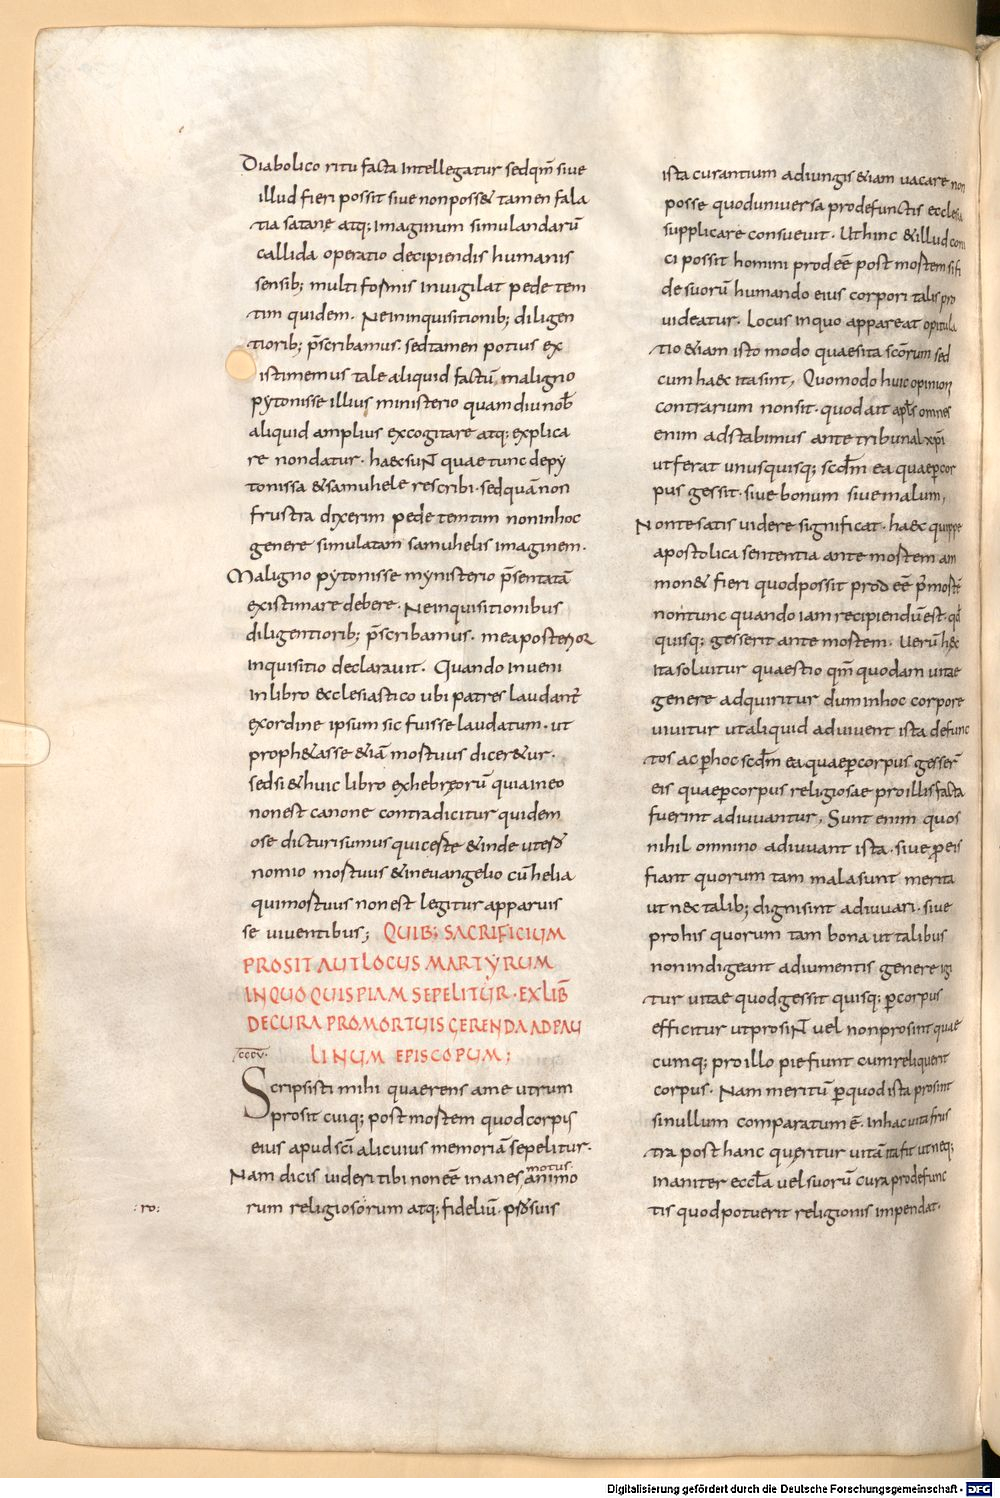 Diabolico ritu facta intellegatur sedqm̄ siue
illud fieri possit siue nonposs& tamen fala
tia satanę atq; imaginum simulandarū
callida operatio decipiendis humanis
sensib; multiformis inuigilat pede tem
tim quidem. Neininquisitionib; diligen
tiorib; p̄scribamus. sedtamen potius ex
istimemus tale aliquid factū, maligno
pẏtonisse illius ministerio quam diu nob̄
aliquid amplius excogitare atq; explica
re nondatur. haecsunt quae tunc depẏ
tonissa &samuhele rescribi. sedquā non
frustra dixerim pede temtim noninhoc
genere simulatam samuhelis imaginem.
Maligno pẏtonisse mẏnisterio p̄sentatā
existimare debere. Neinquisitionibus
diligentiorib; p̄scribamus. meaposterior
inquisitio declarauit. Quando inueni
inlibro ecclesiastico ubi patres laudant̄
exordine ipsum sic fuisse laudatum. ut
proph&asse &iā mortuus dicer&ur.
sedsi &huic libro exhebręorū quia ineo
nonest canone contradicitur quidem
ose dicturisumus quiceste &inde uteró
nomio mortuus &ineuangelio cū helia
quimortuus nonest legitur apparuis
se uiuentibus; QUIB; SACRIFICIUM
PROSIT AUT LOCUS MARTẎRUM
INQUO QUISPIAM SEPELITUR. EX LIB̄
DE CURA PRO MORTUIS GERENDA AD PAU
cccv. LINUM EPISCOPUM;
Scripsisti mihi quaerens ame utrum
prosit cuiq; post mortem quod corpꝰ
eius apud sc̄i alicuius memoriā sepelitur.
motus.
Nam dicis uideri tibi non eē inanes animo
: ro: rum religiosorum atq; fideliū. p suis
ista curantium adiungis &iam uacare non
posse quoduniuersa prodefunctis ecclesia
supplicare consueuit. Ut hinc &illud con
ci possit homini prodeē post mortem si fi
de suorū humando eius corpori talis pro
uideatur. Locus inquo appareat opitula
tio &iam isto modo quaesita sc̄orum sed
cum haec ita sint, Quomodo huic opinioni
contrarium nonsit. quod ait apl̄s omnes
enim adstabimus ante tribunal xp̄i
ut ferat unusquisq; scd̄m ea quae ꝑ cor
pus gessit. siue bonum siue malum,
Nonte satis uidere significat. haec quippe
apostolica sententia ante mortem am
mon& fieri quodpossit prodeē p̄ mortē
non tunc quando iam recipiendū est. qd̄
quisq; gesserit ante mortem. Uerū hęc
ita soluitur quaestio qm̄ quodam uitae
genere adquiritur dum inhoc corpore
uiuitur utaliquid adiuuent ista defunc
tos ac ꝑhoc scd̄m ea quae ꝑ corpus gesser̄
eis quae ꝑ corpus religiosae pro illis facta
fuerint adiuuantur, Sunt enim quos
nihil omnino adiuuant ista. siue ꝑ eis
fiant quorum tam mala sunt merita
ut nec talib; digni sint adiuuari. siue
pro his quorum tam bona ut talibus
nonindigeant adiumentis genere igi
tur uitae quod gessit quisq; ꝑ corpus
efficitur utprosint uel nonprosint quae
cumq; pro illo pie fiunt cum reliquerit
corpus. Nam meritū ꝑ quod ista prosint
sinullum comparatum ē. inhac uita frus
tra post hanc queritur uitā ita fit ut neq;
inaniter eccl̄a uel suorū cura prodefunc
tis quod potuerit religionis impendat.
Digitalisierung gefördert durch die Deutsche Forschungsgemeinschaft - DFG